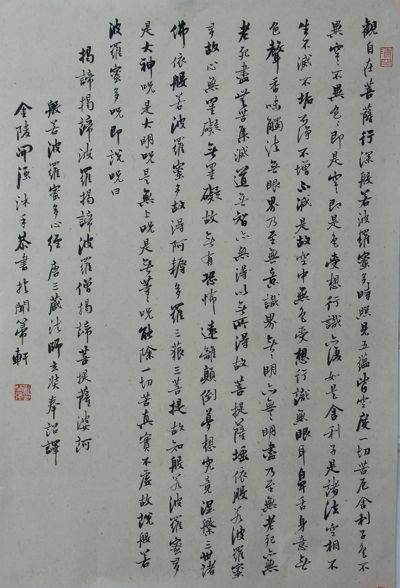 觀自在菩薩行深般若波羅蜜多時照見五蘊皆空度一切苦厄舍利子色不
異空空不異色色即是空空即是色受想行識亦復如是舍利子是諸法空相不
生不滅不垢不淨不增不減是故空中無色受想行識無眼耳鼻舌身意無
色聲香味觸法無眼界乃至無意識界無無明亦無無明盡乃至無老死亦無
老死盡無苦集滅道無智亦無得以無所得故菩提薩埵依般若波羅蜜
多故心無罣礙無罣礙故無有恐怖遠離顛倒夢想究竟涅槃三世諸
佛依般若波羅蜜多故得阿耨多羅三藐三菩提故知般若波羅蜜多
是大神咒是大明咒是無上咒是無等咒能除一切苦真實不虛故說般若
波羅蜜多咒即說咒曰
揭諦揭諦波羅揭諦波羅僧揭諦菩提薩婆訶
般若波羅蜜多心經 唐三藏法師玄奘奉詔譯
金陵開源沐手恭書於聞篆軒